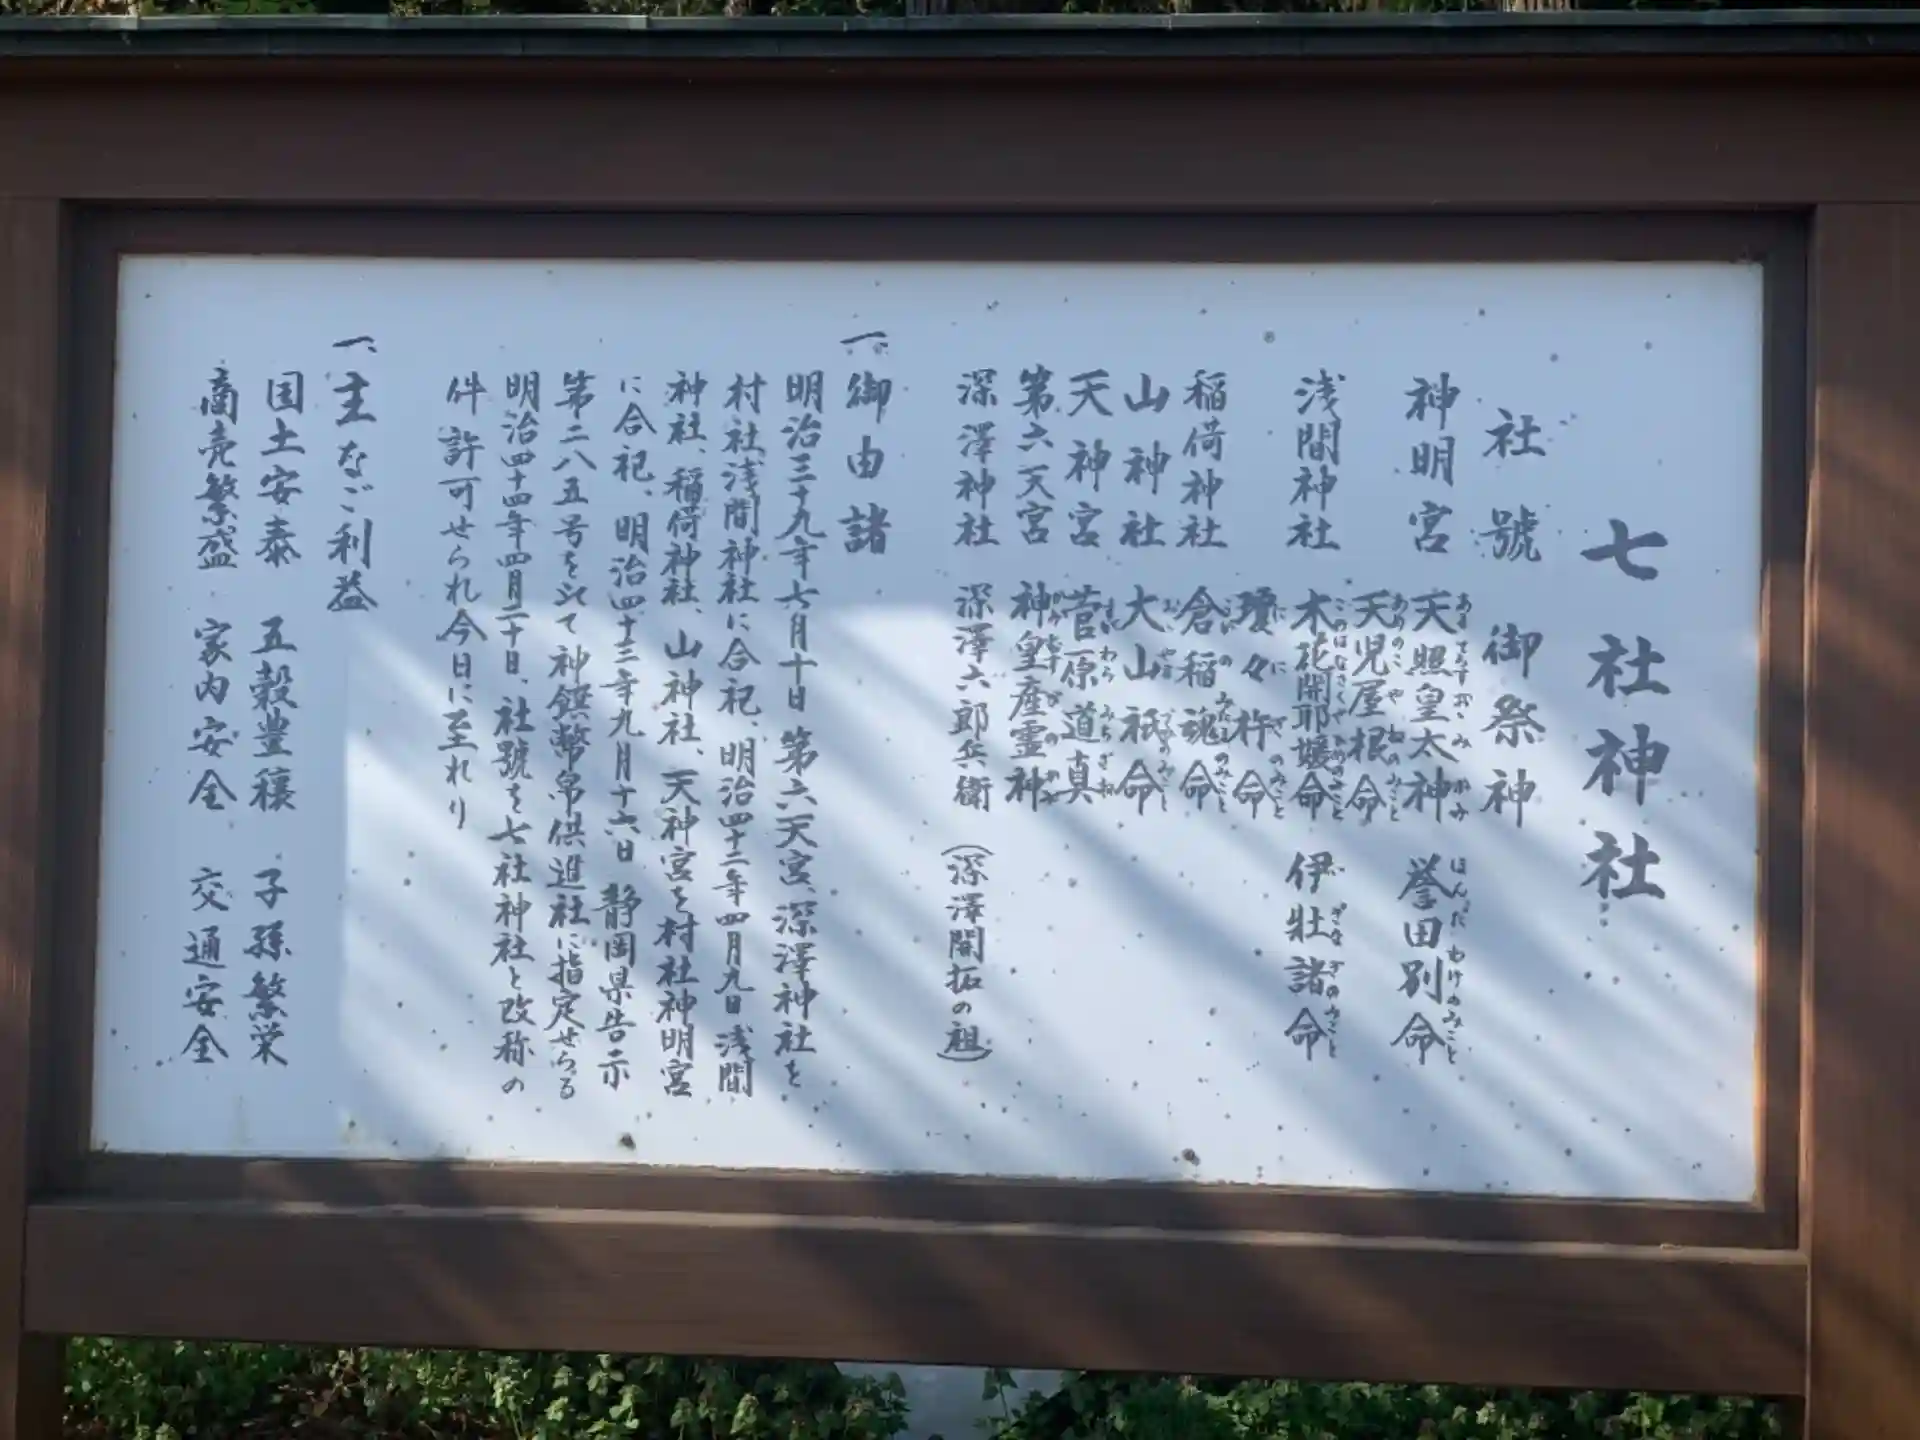 七社神社
社號 御祭神
神明宮 天照皇太神 誉田別命
天児屋根命
浅間神社 木花開耶媛命 伊壮諸命
瓊々杵命
稲荷神社 倉稲魂命
山神社 大山祇命
天神宮 菅原道真
第六天宮 神皇産霊神
深澤神社 深澤六郎兵衛 (深澤開拓の祖)
一、御由諸
明治三十九年七月十日 第六天宮、深澤神社を
村社浅間神社に合祀、明治四十二年四月九日浅間
神社、稲荷神社、山神社、天神宮を村社神明宮
に合祀、明治四十三年九月十六日 静岡県告示
第二八五号を以て神饌幣帛供進社に指定せらる
明治四十四年四月二十日、社號を七社神社と改称の
件許可せられ今日に至れり
一、主なご利益
国土安泰 五穀豊穣 子孫繁栄
商売繁盛 家内安全 交通安全